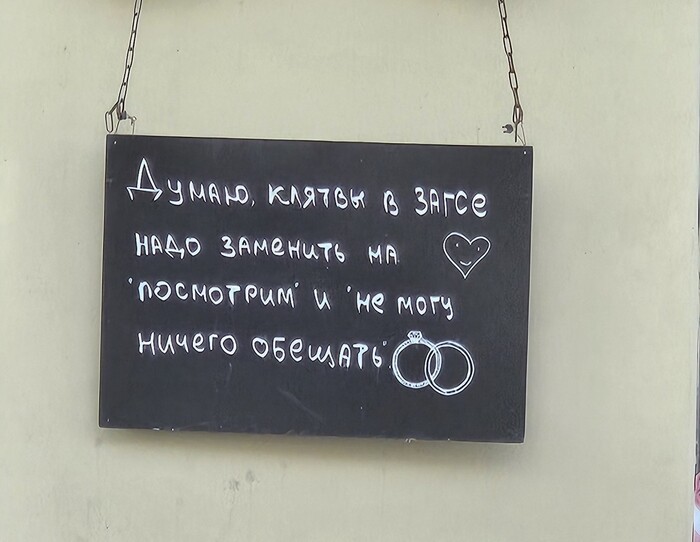 Думаю, клятвы в ЗАГСе
надо заменить на
"посмотрим" и "не могу
ничего обещать"